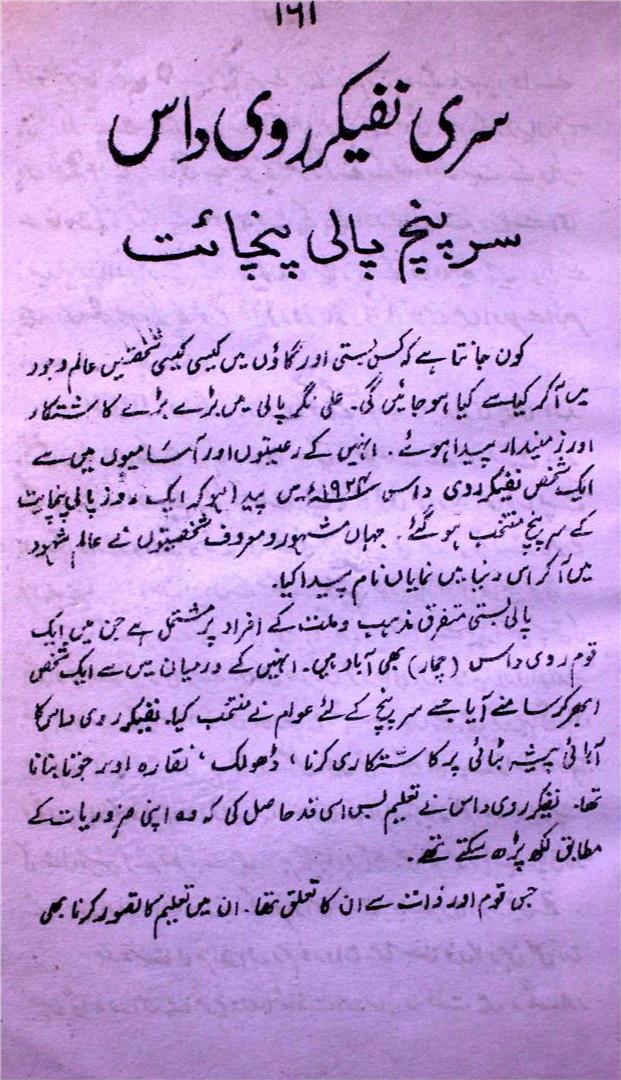 ۱۶۱
سری نفیکر روی داس
سرپنچ پالی پنچائت
کون جانتا ہے کہ کس بستی اور گاؤں میں کیسی کیسی شخصیتیں عالم وجود
میں آکر کیا سے کیا ہو جائیں گی۔ علی نگر پالی میں بڑے بڑے کاشتکار
اور زمیندار پیدا ہوئے۔ انہیں کے رعیتوں اور آسامیوں میں سے
ایک شخص نفیکر روی داس ۱۹۲۷ء میں پیدا ہو کر ایک روز پالی پنچایت
کے سرپنچ منتخب ہو گئے۔ جہاں مشہور و معروف شخصیتوں نے عالم شہود
میں آکر اس دنیا میں نمایاں نام پیدا کیا۔
پالی بستی متفرق مذہب و ملت کے افراد پر مشتمل ہے جن میں ایک
قوم روی داس (چمار) بھی آباد ہیں۔ انہیں کے درمیان میں سے ایک شخص
ابھر کر سامنے آیا جسے سرپنچ کے لئے عوام نے منتخب کیا۔ نفیکر روی داس کا
آبائی پیشہ بٹائی پر کاستکاری کرنا، ڈھولک، نقارہ اور جوتا بنانا
تھا۔ نفیکر روی داس نے تعلیم بس اسی قدر حاصل کی کہ وہ اپنی ضروریات کے
مطابق لکھ پڑھ سکتے تھے۔
جس قوم اور ذات سے ان کا تعلق تھا۔ ان میں تعلیم کا تصور کرنا بھی